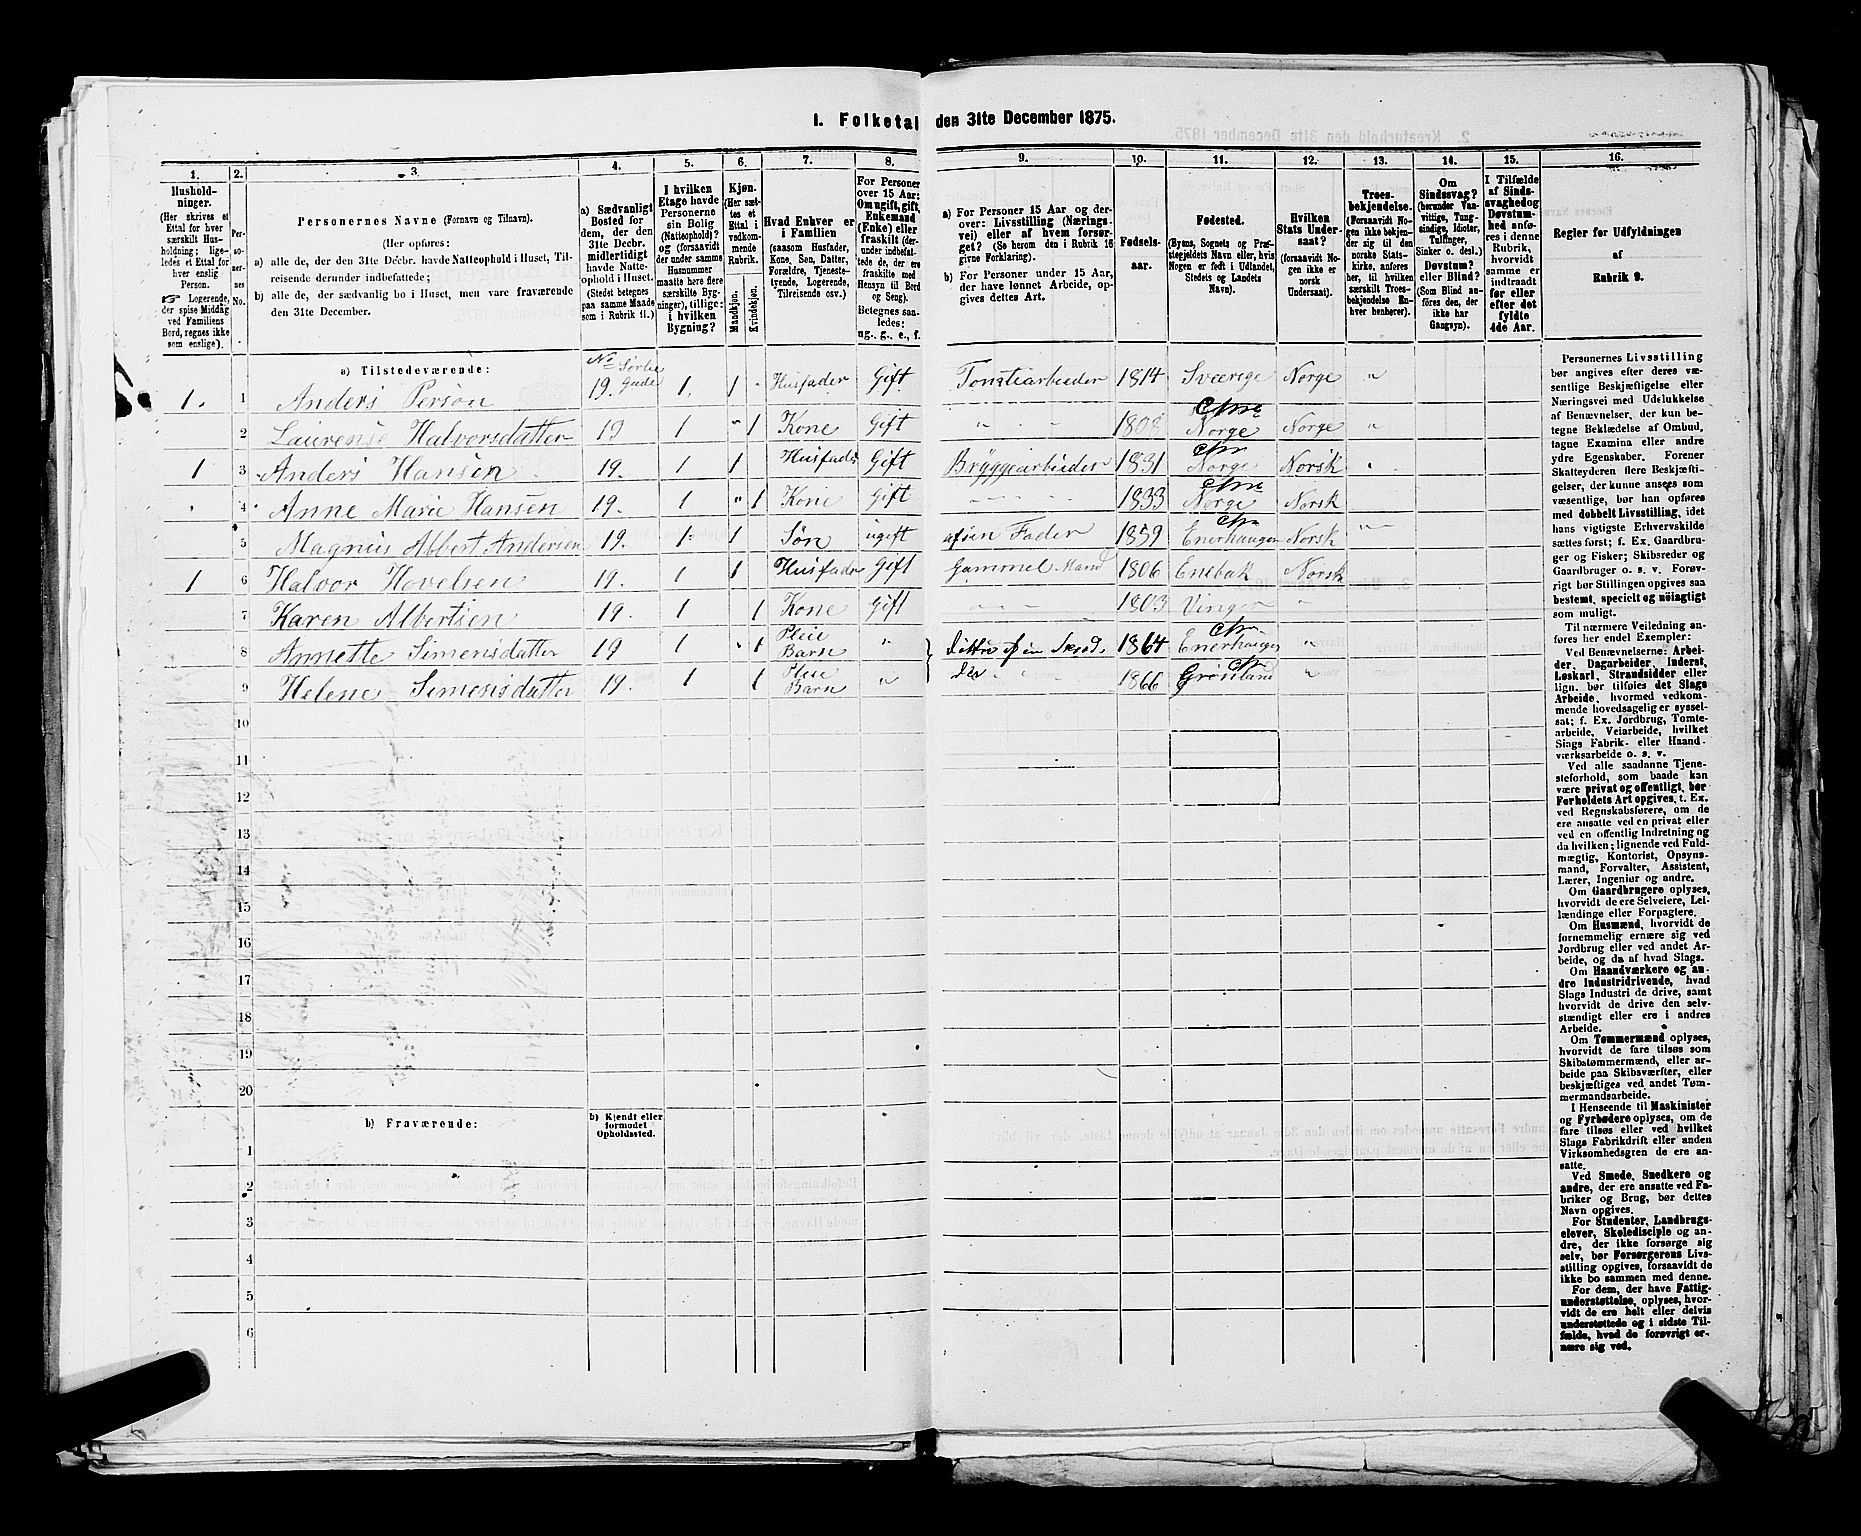 1. Folketal den 31te December 1875.
1. 2. 3. 4. 5. 6. 7. 8. 9. 10. 11. 12. 13. 14. 15. 16.
Husholdninger.
(Her skrives et
Ettal for hver
særskilt Husholdning;
ligeledes et Ettal for
hver enslig
Person.
Logerende,
der spise Middag
ved Familiens
Bord, regnes ikke
som enslige).
Personernes No.
Personernes Navne (Fornavn og Tilnavn).
(Her opføres:
a) alle de, der den 31te Decbr. havde Natteophold i Huset, Tilreisende
derunder indbefattede;
b) alle de, der sædvanlig bo i Huset, men vare fraværende
den 31te December.
a) Sædvanligt
Bosted for
dem, der den
31te Decbr.
midlertidigt
havde Natteophold
i Huset.
(Stedet betegnes
paa samme Maade
som i Rubrik 11.)
I hvilken
Etage havde
Personerne
sin Bolig
(Natteophold)?
og (forsaavidt
der under samme
Husnummer
maatte høre flere
særskilte Bygninger),
tillige:
i hvilken
Bygning?
Kjøn.
(Her sættes
et
Ettal i
vedkommende
Rubrik.
Mandkjøn.
Kvindekjøn.
Hvad Enhver er
i Familien
(saasom Husfader,
Kone, Søn, Datter,
Forældre, Tjenestetyende,
Logerende,
Tilreisende osv.)
For Personer
over 15 Aar:
Om ugift, gift,
Enkemand
(Enke) eller
fraskilt (derunder
indbefattede,
der ere
fraskilte med
Hensyn til Bord
og Seng).
Betegnes saaledes:
ug., g., e., f.
a) For Personer 15 Aar og derover:
Livsstilling (Næringsvei)
eller af hvem forsørget?
(Se herom den i Rubrik 16
givne Forklaring).
b) For Personer under 15 Aar,
der have lønnet Arbeide, opgives
dettes Art.
Fødselsaar.
Fødested.
(Byens, Sognets og Præstegjeldets
Navn eller, hvis
Nogen er født i Udlandet,
Stedets og Landets
Navn).
Hvilken
Stats Undersaat?
(forsaavidt Nogen
ikke er
norsk
Undersaat).
Troesbekjendelse.
(Forsaavidt Nogen
ikke bekjender
sig til den
norske Statskirke,
anføres
her, til hvilken
særskilt Troesbekjendelse
Enhver
henhører).
Om
Sindssvag?
(herunder Vanvittige,
Tungsindige,
Idioter,
Tullinger,
Sinker o. desl.)
Døvstum?
eller Blind?
(Som Blind anføres
den, der
ikke har
Gangsyn).
I Tilfælde
af Sindssvaghed
og
Døvstumhed
anføres
i denne
Rubrik,
hvorvidt
samme er
indtraadt
før eller
efter det
fyldte
4de Aar.
Regler for Udfyldningen
af
Rubrik 9.
a) Tilstedeværende:
1. 1 Anders Person No 19. Sørlie Gade 1. 1 Husfader Gift Tomtiarbeider 1814 Sværige Norge "
2 Laurense Halvorsdatter 19 1 " 1 Kone Gift " " " 1808 Chra Norge Norge "
1 3 Anders Hansen 19. 1 1 Husfader Gift Bryggearbeider 1831 Chra Norge Norsk "
4 Anne Marie Hansen 19. 1 " 1 Kone Gift " " " 1833 Chra Norge Norsk
5 Magnus Albert Andersen 19. 1 1 Søn ugift af sin Fader 1859 Chra Enerhaugen Norsk "
1 6 Halvor Hovelsen 19. 1 1 Husfader Gift Gammel Mand 1806 Enebak Norsk
7 Karen Albertsen 19. 1 1 Kone Gift " " " 1803 Vinger "
8 Annette Simensdatter 19 1 " 1 Pleie Barn " 1864 Chra Enerhaugen "
9 Helene Simensdatter 19. 1 1 Pleie Barn " " " 1866 Chr Grønland "
10
11
12
13
14
15
16
17
18
19
20
b) Fraværende:
b) Kjendt eller
formodet
Opholdssted.
1
2
3
4
5
6
Personernes Livsstilling
bør angives efter deres væsentlige
Beskjæftigelse eller
Næringsvei med Udelukkelse
af Benævnelser, der kun betegne
Beklædelse af Ombud,
tagne Examina eller andre
ydre Egenskaber. Forener
Skatteyderen flere Beskjæftigelser,
der kunne ansees som
væsentlige, bør han opføres
med dobbelt Livsstilling, idet
hans vigtigste Erhvervskilde
sættes først; f. Ex. Gaardbruger
og Fisker; Skibsreder og
Gaardbruger o. s. v. Forøvrigt
bør Stillingen opgives saa
bestemt, specielt og nöiagtigt
som muligt.
Til nærmere Veiledning anføres
her endel Exempler:
Ved Benævnelserne: Arbeider,
Dagarbeider, Inderst,
Løskarl, Strandsidder eller
lign. bør tilføies det Slags
Arbeide, hvormed vedkommende
hovedsagelig er sysselsat;
f. Ex. Jordbrug, Tomtearbeide,
Veiarbeide, hvilket
Slags Fabrik- eller Haandværksarbeide
o. s. v.
Ved alle saadanne Tjenesteforhold,
som baade kan
være privat og offentligt, bør
Forholdets Art opgives, t. Ex.
ved Regnskabsførere, om de
ere ansatte ved en privat eller
ved en offentlig Indretning og
da hvilken; lignende ved Fuldmægtig,
Kontorist, Opsynsmand,
Forvalter, Assistent,
Lærer, Ingeniør og andre.
Om Gaardbrugere oplyses,
hvorvidt de ere Selveiere, Leilændinge
eller Forpagtere.
Om Husmænd, hvorvidt de
fornemmelig ernære sig ved
Jordbrug eller ved andet Arbeide,
og da af hvad Slags.
Om Haandværkere og andre
Industridrivende, hvad
Slags Industri de drive, samt
hvorvidt de drive den selvstændigt
eller ere i andres
Arbeide.
Om Tømmermænd oplyses,
hvorvidt de fare tilsøs som
Skibstømmermænd, eller arbeide
paa Skibsværfter, eller
beskjæftiges ved andet Tømmermandsarbeide.
I Henseende til Maskinister
og Fyrbødere oplyses, om de
fare tilsøs eller ved hvilket
Slags Fabrikdrift eller anden
Virksomhedsgren de ere ansatte.
Ved Smede, Snedkere og
andre, der ere ansatte ved Fabriker
og Brug, bør dettes
Navn opgives.
For Studenter, Landbrugselever,
Skoledisciple og andre,
der ikke forsørge sig
selv, bør Forsørgerens Livsstilling
opgives, forsaavidt de
ikke bo sammen med denne.
For dem, der have Fattigunderstøttelse,
oplyses, hvorvidt
de ere helt eller delvis
understøttede og i sidste Tilfælde,
hvad de forøvrigt ernære
sig ved.